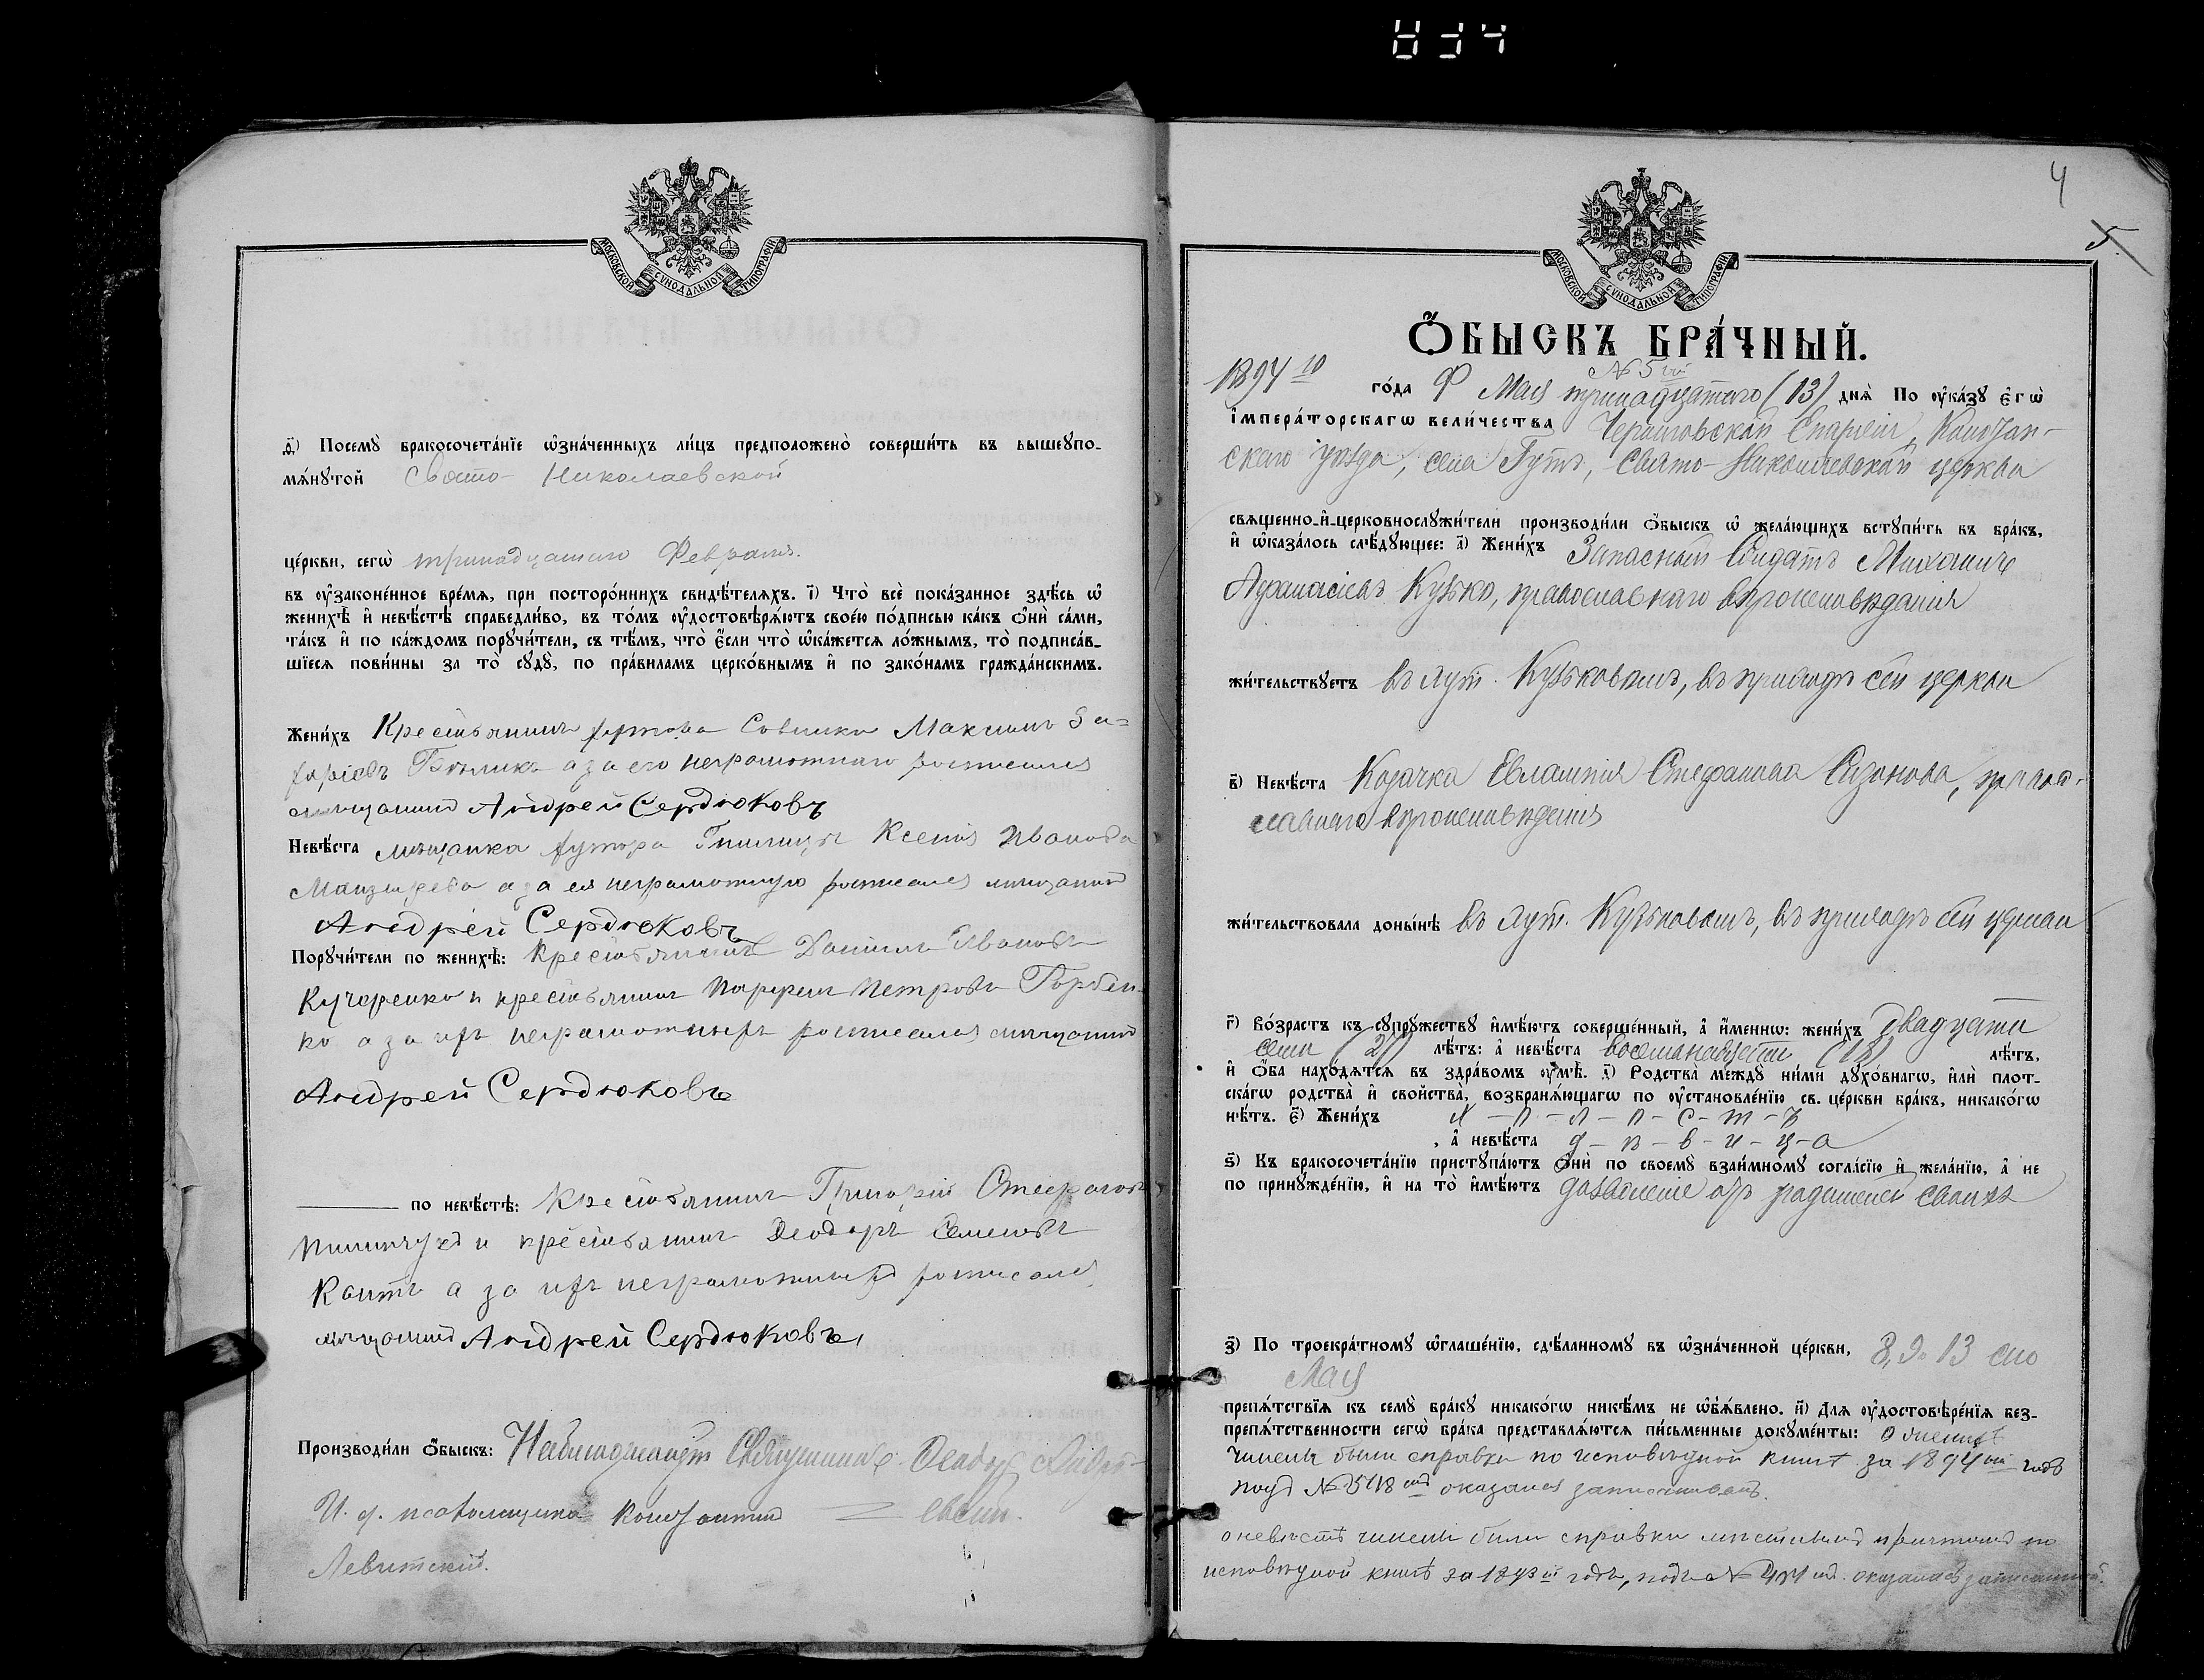 834
МОСКОВСКОЙ СѴНОДАЛЬНОЙ ТИПОГРАФІИ
ѳ҃) Посемꙋ бракосочета́нїе ѡ҆зна́ченныхъ ли́цъ предположено̀ соверши́ть въ вышеꙋпо-
мѧ́нꙋтой Свято-Николаевской
це́ркви, сегѡ̀ тринадцатаго Февраля.
въ ᲂу҆законе́нное вре́мѧ, при посторо́ннихъ свидѣ́телѧхъ. і҃) Что̀ всѐ пока́занное здѣ́сь ѡ҆
женихѣ̀ и҆ невѣ́стѣ справедли́во, въ то́мъ ᲂу҆достовѣрѧ́ютъ свое́ю по́дписью ка́къ ѻ҆нѝ са́ми,
та́къ и҆ по ка́ждомъ порꙋчи́тели, съ тѣ́мъ, что̀ є҆́сли что̀ ѡ҆ка́жетсѧ ло́жнымъ, то̀ подписа́в-
шїесѧ пови́нны за то̀ сꙋдꙋ̀, по пра́виламъ церко́внымъ и҆ по зако́намъ гражда́нскимъ.
Жени́хъ Крестьянинъ хутора Савинки Максимъ За-
харіевъ а за его неграмотнаго росписался
мѣщанинъ Андрей Сердюковъ
Невѣ́ста мѣщанка хутора Ксенія Иванова
а за ея неграмотную росписался мѣщанинъ
Андрей Сердюковъ
Порꙋчи́тели по женихѣ̀: крестьянинъ Даніилъ Ивановъ
Кучеренко и крестьянинъ Петровъ Горбен-
ко а за ихъ неграмотныхъ росписался мѣщанинъ
Андрей Сердюковъ
по невѣ́стѣ: крестьянинъ Григорій Стефановъ
и крестьянинъ Ѳеодоръ Семеновъ
а за ихъ неграмотныхъ росписался
мѣщанинъ Андрей Сердюковъ,
Производи́ли ѻ҆́быскъ: Священникъ Ѳеодоръ
И. д. псаломщика Константинъ
Левитскій.
4
5
МОСКОВСКОЙ СѴНОДАЛЬНОЙ ТИПОГРАФІИ
Ѻ҆́БЫСКЪ БРА́ЧНЫЙ.
№ 5й
1894го го́да Мая тринадцатаго (13) днѧ̀ По ᲂу҆ка́зꙋ є҆гѡ̀
і҆мпера́торскагѡ вели́чества Черниговской Епархіи, Конотоп-
скаго уѣзда, села Гутъ, Свято-Николаевской церкви
свѧщенно-и҆-церковнослꙋжи́тели производи́ли ѻ҆́быскъ ѡ҆ жела́ющихъ встꙋпи́ть въ бра́къ,
и҆ ѡ҆каза́лось слѣ́дꙋющее: а҃) Жени́хъ Запасный Солдатъ Михаилъ
Аѳанасіевъ Кузько, православнаго вѣроисповѣданія
жи́тельствꙋетъ въ хут. Кузьковомъ, въ приходѣ сей церкви
в҃) Невѣ́ста Козачка Евлампія Стефанова Сизонова, право-
славнаго вѣроисповѣданія
жи́тельствовала доны́нѣ въ хут. Кузьковомъ, въ приходѣ сей церкви
г҃) Во́зрастъ къ сꙋпрꙋ́жествꙋ и҆мѣ́ютъ соверше́нный, а҆ и҆́меннѡ: жени́хъ двадцати
семи (27) лѣ́тъ: а҆ невѣ́ста восемнадцати (18) лѣ́тъ,
и҆ ѻ҆́ба нахо́дѧтсѧ въ здра́вомъ ᲂу҆мѣ̀. д҃) Родства̀ ме́ждꙋ ни́ми дꙋхо́внагѡ, и҆лѝ плот-
ска́гѡ родства̀ и҆ сво́йства, возбранѧ́ющагѡ по ᲂу҆становле́нїю св. це́ркви бра́къ, никако́гѡ
нѣ́тъ. є҃) Жени́хъ х-о-л-о-с-т-ъ
, а҆ невѣ́ста д-ѣ-в-и-ц-а
ѕ҃) Къ бракосочета́нїю пристꙋпа́ютъ ѻ҆нѝ по своемꙋ̀ взаи́мномꙋ согла́сїю и҆ жела́нїю, а҆ не
по принꙋжде́нїю, и҆ на то̀ и҆мѣ́ютъ дозволеніе отъ родителей своихъ
з҃) По троекра́тномꙋ ѡ҆глаше́нїю, сдѣ́ланномꙋ въ ѡ҆зна́ченной це́ркви, 8, 9 13 сего
Мая
препѧ́тствїѧ къ семꙋ̀ бра́кꙋ никако́гѡ никѣ́мъ не ѡ҆б̾ѧ́влено. и҃) Длѧ ᲂу҆достовѣре́нїѧ без-
препѧ́тственности сегѡ̀ бра́ка представлѧ́ютсѧ пи́сьменные докꙋме́нты: О женихѣ
чинены были справки по исповѣдной книгѣ за 1894й годъ
подъ № оказался записаннымъ.
о невѣстѣ чинены были справки мѣстнымъ причтомъ по
исповѣдной книгѣ за годъ, подъ № оказалась записанной.